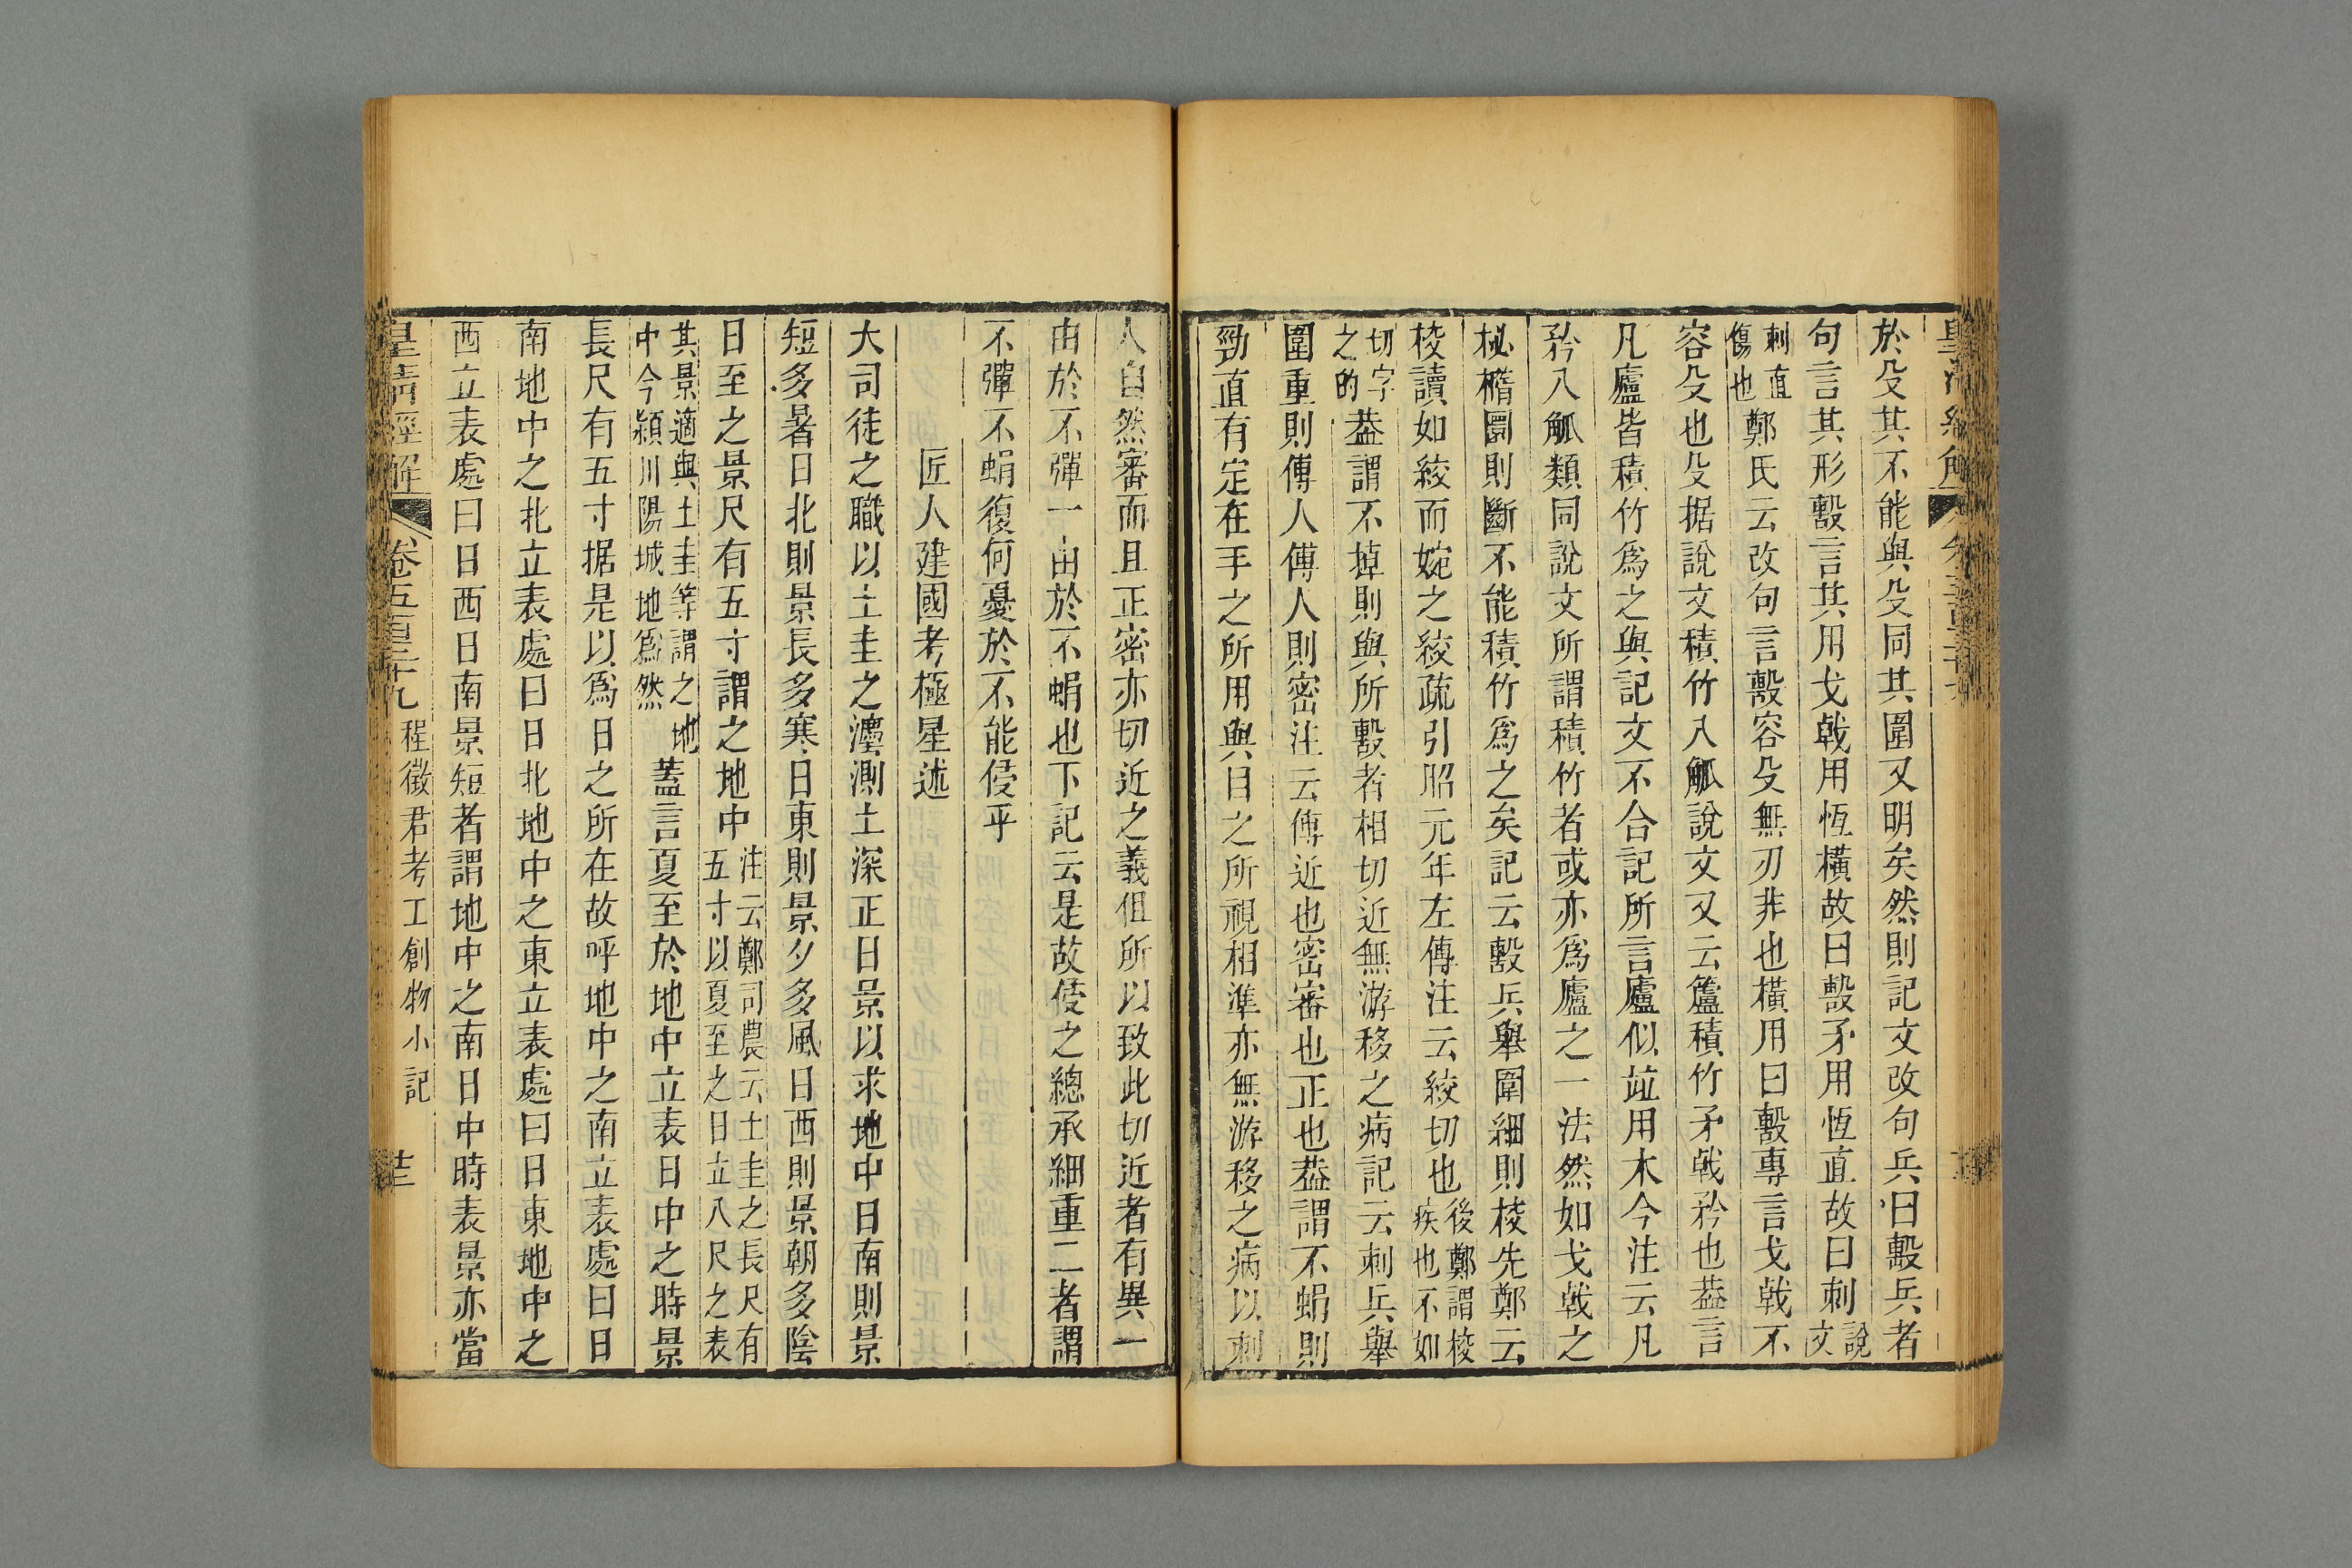 於殳其不能與殳同其圍又明矣然則記文改句兵曰毄兵者
句言其形毄言其用戈戟用恆橫故曰毄矛用恆直故曰刺說文
刺直傷也鄭氏云改句言毄容殳無刃非也橫用曰毄專言戈戟不
容殳也殳据說文積竹八觚說文又云籚積竹矛戟矜也葢言
凡廬皆積竹爲之與記文不合記所言廬似竝用木今注云凡
矜八觚類同說文所謂積竹者或亦爲廬之一法然如戈戟之
柲橢圜則斷不能積竹爲之矣記云毄兵舉圍細則棱先鄭云
棱讀如絞而婉之絞疏引昭元年左傳注云絞切也後鄭謂棱疾也不如
切字之的葢謂不掉則與所毄者相切近無游移之病記云刺兵舉
圍重則傅人傅人則密注云傅近也密審也正也葢謂不蜎則
勁直有定在手之所用與目之所視相準亦無游移之病以刺
人自然審而且正密亦切近之義但所以致此切近者有異一
由於不彈一由於不蜎也下記云是故侵之總承細重二者謂
不彈不蜎復何憂於不能侵乎
匠人建國考極星述
大司徒之職以土圭之灋測土深正日景以求地中日南則景
短多暑日北則景長多寒日東則景夕多風日西則景朝多陰
日至之景尺有五寸謂之地中注云鄭司農云土圭之長尺有五寸以夏至之日立八尺之表
其景適與土圭等謂之地中今潁川陽城地爲然蓋言夏至於地中立表日中之時景
長尺有五寸据是以爲日之所在故呼地中之南立表處曰日
南地中之北立表處曰日北地中之東立表處曰日東地中之
西立表處曰日西日南景短者謂地中之南日中時表景亦當
皇清經解 卷五百三十九 程徵君考工創物小記